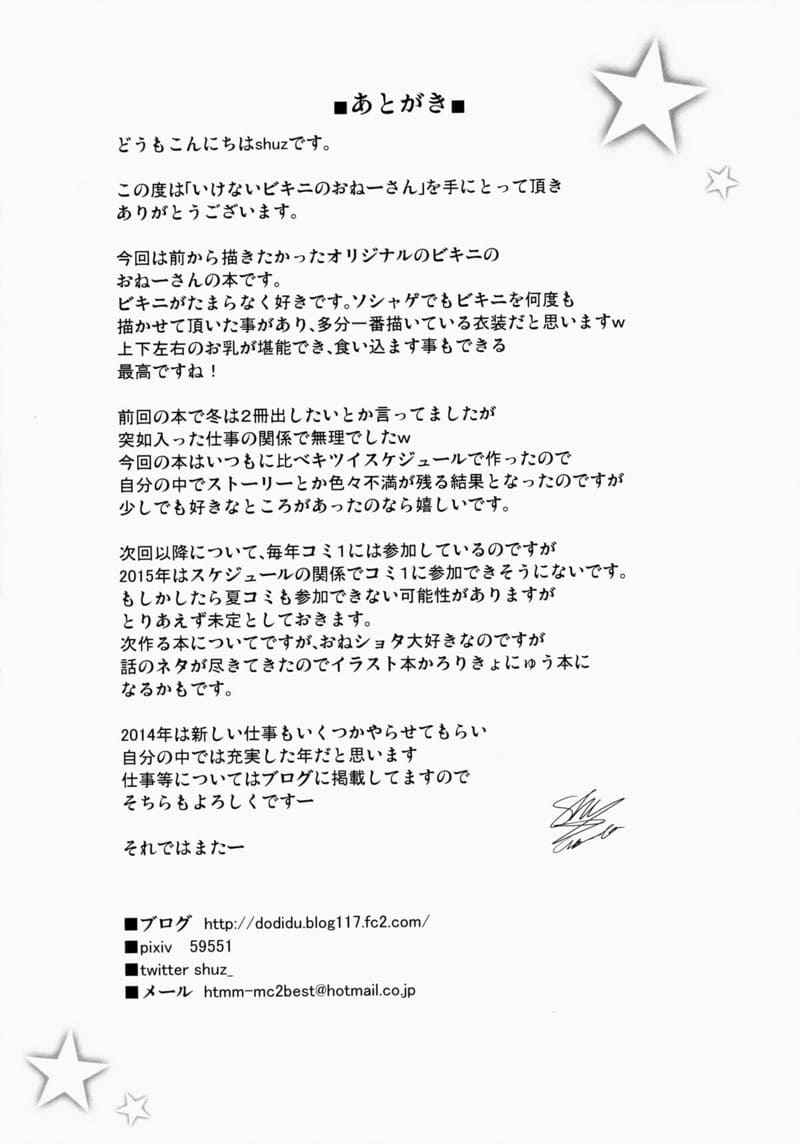 ■あとがき■
どうもこんにちはshuzです。
この度は「いけないビキニのおねーさん」を手にとって頂き
ありがとうございます。
今回は前から描きたかったオリジナルのビキニの
おねーさんの本です。
ビキニがたまらなく好きです。ソシャゲでもビキニを何度も
描かせて頂いた事があり、多分一番描いている衣装だと思いますw
上下左右のお乳が堪能でき、食い込ます事もできる
最高ですね！
前回の本で冬は2冊出したいとか言ってましたが
突如入った仕事の関係で無理でしたw
今回の本はいつもに比べキツイスケジュールで作ったので
自分の中でストーリーとか色々不満が残る結果となったのですが
少しでも好きなところがあったのなら嬉しいです。
次回以降について、毎年コミ1には参加しているのですが
2015年はスケジュールの関係でコミ1に参加できそうにないです。
もしかしたら夏コミも参加できない可能性がありますが
とりあえず未定としておきます。
次作る本についてですが、おねショタ大好きなのですが
話のネタが尽きてきたのでイラスト本かろりきょにゅう本に
なるかもです。
2014年は新しい仕事もいくつかやらせてもらい
自分の中では充実した年だと思います
仕事等についてはブログに掲載してますので
そちらもよろしくですー
Shuz
それではまたー
■ブログ http://dodidu.blog117.fc2.com/
■pixiv 59551
■twitter shuz_
■メール htmm-mc2best@hotmail.co.jp